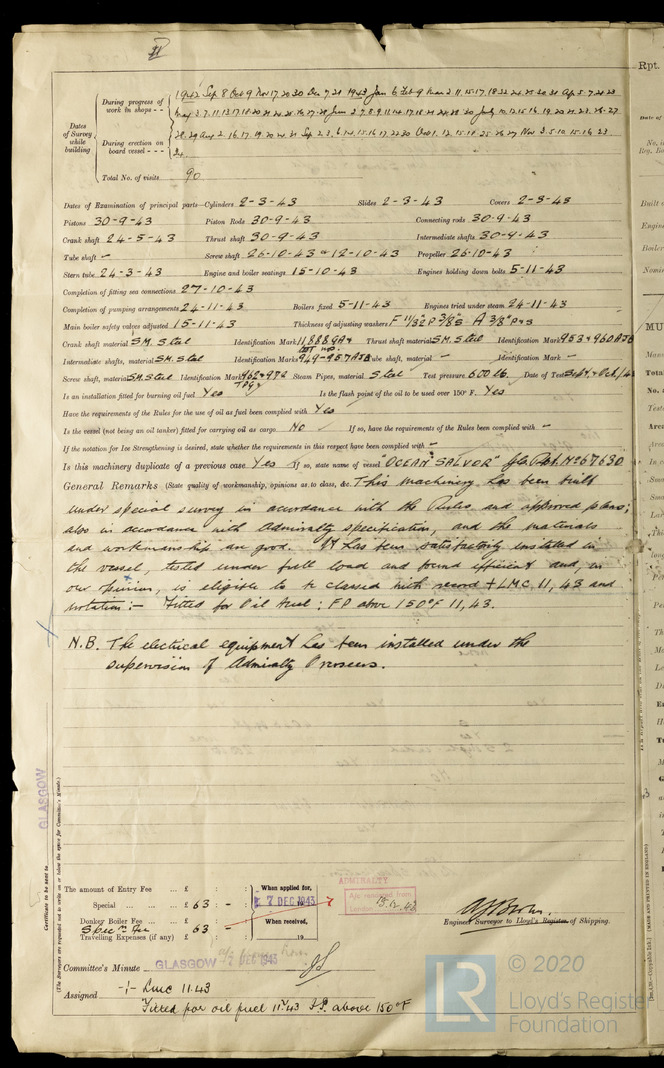 II
Dates of Survey while building
During progress of work in shops - -
1942 Sep. 8 Oct 9 Nov 17 20 30 Dec 7 21 1943 Jan 6 Feb 9 Mar 2 11 15 17 18 22 24 25 30 31 Ap. 5 7 21 23
May 3 7 11 13 17 18 20 21 24 25 26 27 28 June 2 7 8 9 11 14 17 18 21 24 28 30 July 10 12 15 16 19 20 21 23 26 27
During erection on board vessel - - -
28 29 Aug 2 16 17 19 20 31 Sep 2 3 6 14 15 16 17 22 30 Oct 1 12 15 18 25 26 27 Nov 3 5 10 15 16 23
24.
Total No. of visits 90
Dates of Examination of principal parts—Cylinders 2-3-43 Slides 2-3-43 Covers 2-3-43
Pistons 30-9-43 Piston Rods 30-9-43 Connecting rods 30-9-43
Crank shaft 24-5-43 Thrust shaft 30-9-43 Intermediate shafts 30-9-43
Tube shaft — Screw shaft 26-10-43 & 12-10-43 Propeller 26-10-43
Stern tube 24-3-43 Engine and boiler seatings 15-10-43 Engines holding down bolts 5-11-43
Completion of fitting sea connections 27-10-43
Completion of pumping arrangements 24-11-43 Boilers fixed 5-11-43 Engines tried under steam 24-11-43
Main boiler safety valves adjusted 15-11-43 Thickness of adjusting washers F 11/32" P 3/8" S A 3/8" P & S
Crank shaft material S.M. Steel Identification Mark Thrust shaft material S.M. Steel Identification Mark 953 & 960 AJB
Intermediate shafts, material S.M. Steel Identification Marks 949-957 AJB Tube shaft, material — Identification Mark —
Screw shaft, material S.M. Steel Identification Mark 962 & 972 Steam Pipes, material Steel Test pressure 600 lb. Date of Test Sept. & Oct./43
Is an installation fitted for burning oil fuel Yes Is the flash point of the oil to be used over 150° F. Yes
Have the requirements of the Rules for the use of oil as fuel been complied with Yes
Is the vessel (not being an oil tanker) fitted for carrying oil as cargo No If so, have the requirements of the Rules been complied with —
If the notation for Ice Strengthening is desired, state whether the requirements in this respect have been complied with —
Is this machinery duplicate of a previous case Yes If so, state name of vessel "OCEAN SALVOR" Gls Rpt. No 67630
General Remarks (State quality of workmanship, opinions as to class, &c. This machinery has been built
under special survey in accordance with the Rules and approved plans;
also in accordance with Admiralty specification, and the materials
and workmanship are good. It has been satisfactorily installed in
the vessel, tested under full load and found efficient and, in
our opinion, is eligible to be classed with record + LMC. 11, 43 and
notation:— Fitted for Oil Fuel; F.P. above 150°F 11, 43.
N.B. The electrical equipment has been installed under the
supervision of Admiralty Overseers.
GLASGOW
Certificate to be sent to
(The Surveyors are requested not to write on or below the space for Committee's Minute.)
The amount of Entry Fee ... £ : : When applied for,
Special ... ... £ 63 : - : 7 DEC 1943
Donkey Boiler Fee ... £ : : When received,
Spec'n Fee 63 : -
Travelling Expenses (if any) £ : : 19
ADMIRALTY
Engineer Surveyor to Lloyd's Register of Shipping.
Committee's Minute GLASGOW DEC 1943
Assigned + LMC 11.43
Fitted for oil fuel 11.43 F.P. above 150°F
© 2020
LR
Lloyd's Register
Foundation
Rpt.